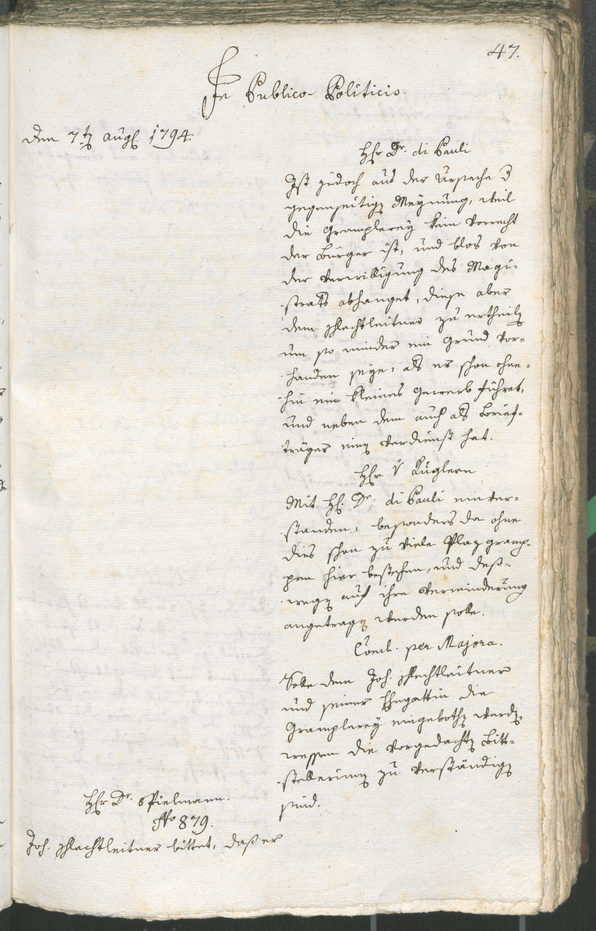 47.
In Publico-Politicis.
Den 7ten Augt. 1794
Hr Dr. di Pauli
Ist jedoch aus der Ursache 3
gegenseitiger Meynung, weil
die Gramplerey kein Vorrecht
der Bürger ist, und blos von
der Verwilligung des Magi-
strats abhanget, diese aber
dem Schlechtleitner zu ertheilen
um so minder ein Grund vor-
handen seye, als er schon ohne-
hin ein kleines Gewerb führet,
und neben dem auch als Brief-
träger einen Verdienst hat.
Hr v Kuglern
Mit H. Dr. di Pauli einver-
standen, besonders da ohne
dies schon zu viele Plaz gramp-
pen hier bestehen, und deß-
wegen auch ihre Verminderung
angetragen werden solle.
Concl. per Majora.
Solle dem Joh. Schlechtleitner
und seiner Ehegattin die
Gramplerey eingebothen werden,
wessen die vorgedachten Bitt-
stellerinen zu verständigen
sind.
Hr Dr. Spielmann.
No 879.
Joh. Schlechtleitner bittet, daß er